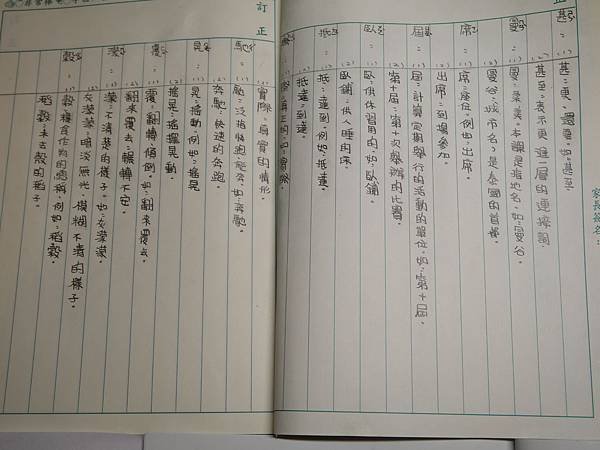 甚：(1)甚：更、還要。如：甚至
(2)甚至：表示更進一層的連接詞
曼：(1)曼：柔美。本課是指地名。如：曼谷
(2)曼谷：城市名，是泰國的首都。
席：(1)席：座位。例如：出席。
(2)出席：到場參加。
屆：(1)屆：計算定期舉行的活動的單位。如：第十屆。
(2)第十屆：第十次舉辦的比賽。
臥：(1)臥：供休習用的。如：臥鋪
(2)臥鋪：供人睡的床。
抵：(1)抵：達到。例如：抵達。
(2)抵達：到達。
(2)實際：真實的情形。
馳：(1)馳：泛指快跑、經營。如：奔馳
(2)奔馳：快速的奔跑。
晃：(1)晃：搖動。例如：搖晃
(2)搖晃：搖擺晃動。
覆：(1)覆：翻轉、傾倒。如：翻來覆去。
(2)翻來覆去：輾轉不定。
濛：(1)濛：不清楚的樣子。如：灰濛濛。
(2)灰濛濛：暗淡無光，模糊不清的樣子。
穀：(1)穀：糧食作物的總稱。例如：稻穀。
(2)稻穀：未去殼的稻子。
訂正
家長簽名：